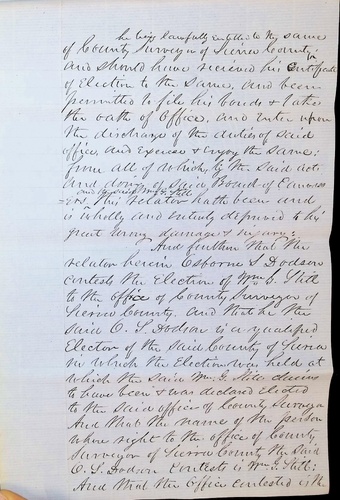 he being lawfully entitled to the same
of County Surveyor of Sierra County
and should have received his Certificate
of Election to the same, and been
permitted to file his bonds & take
the oath of Office, and enter upon
the discharge of the duties of said
office and exercise & enjoy the same;
from all of which, by the said acts
and doings of said Board of Canvass
and by said Wm G. Still
ers. This relator hath been and
is wholly and entirely deprived to his
great wrong damage & injury:
And further that the
relator herein Osborne S Dodson
contests the Election of Wm G. Still
to the office of County Surveyor of
Sierra County. And that he the
said O. S. Dodson is a qualified
Elector of the said County of Sierra
in which the Election was held at
which the said Wm. G. Still claims
to have been & was declared elected
to the said office of County Surveyor
And that the name of the person
whose right to the office of County
Surveyor of Sierra County the said
O. S. Dodson contests is Wm G. Still:
And that the office contested is the